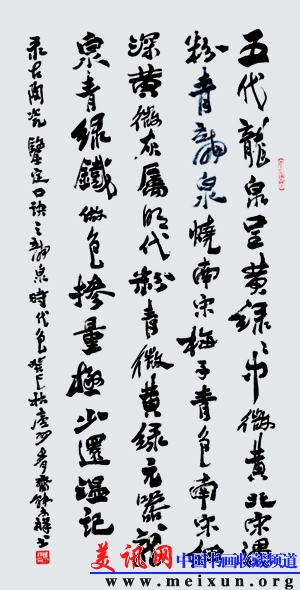 五代龍泉呈黄绿〻中微黄北宋還
粉青龍泉燒南宋梅子青色南宋
深黄微灰属明代粉青微黄绿元器龍
泉青绿鐵做色摻量極少還温記
录古陶瓷鑒定口诀之龍泉時代色癸巳秋
美讯网
中国书画收藏频道
www.meixun.org